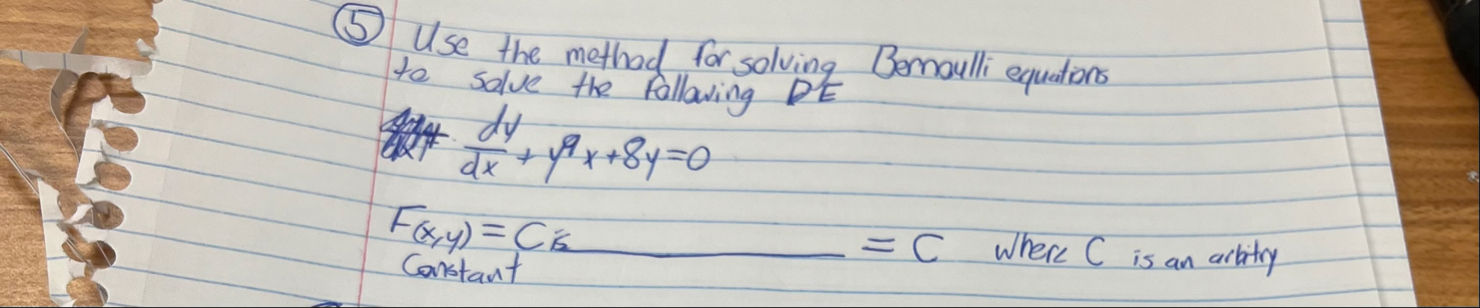 ⑤ Use the method for solving Bernoulli equations
to solve the following DE
dy/dx + y⁹x + 8y = 0
F(x,y) = C is ____________ = C where C is an arbitry
Constant